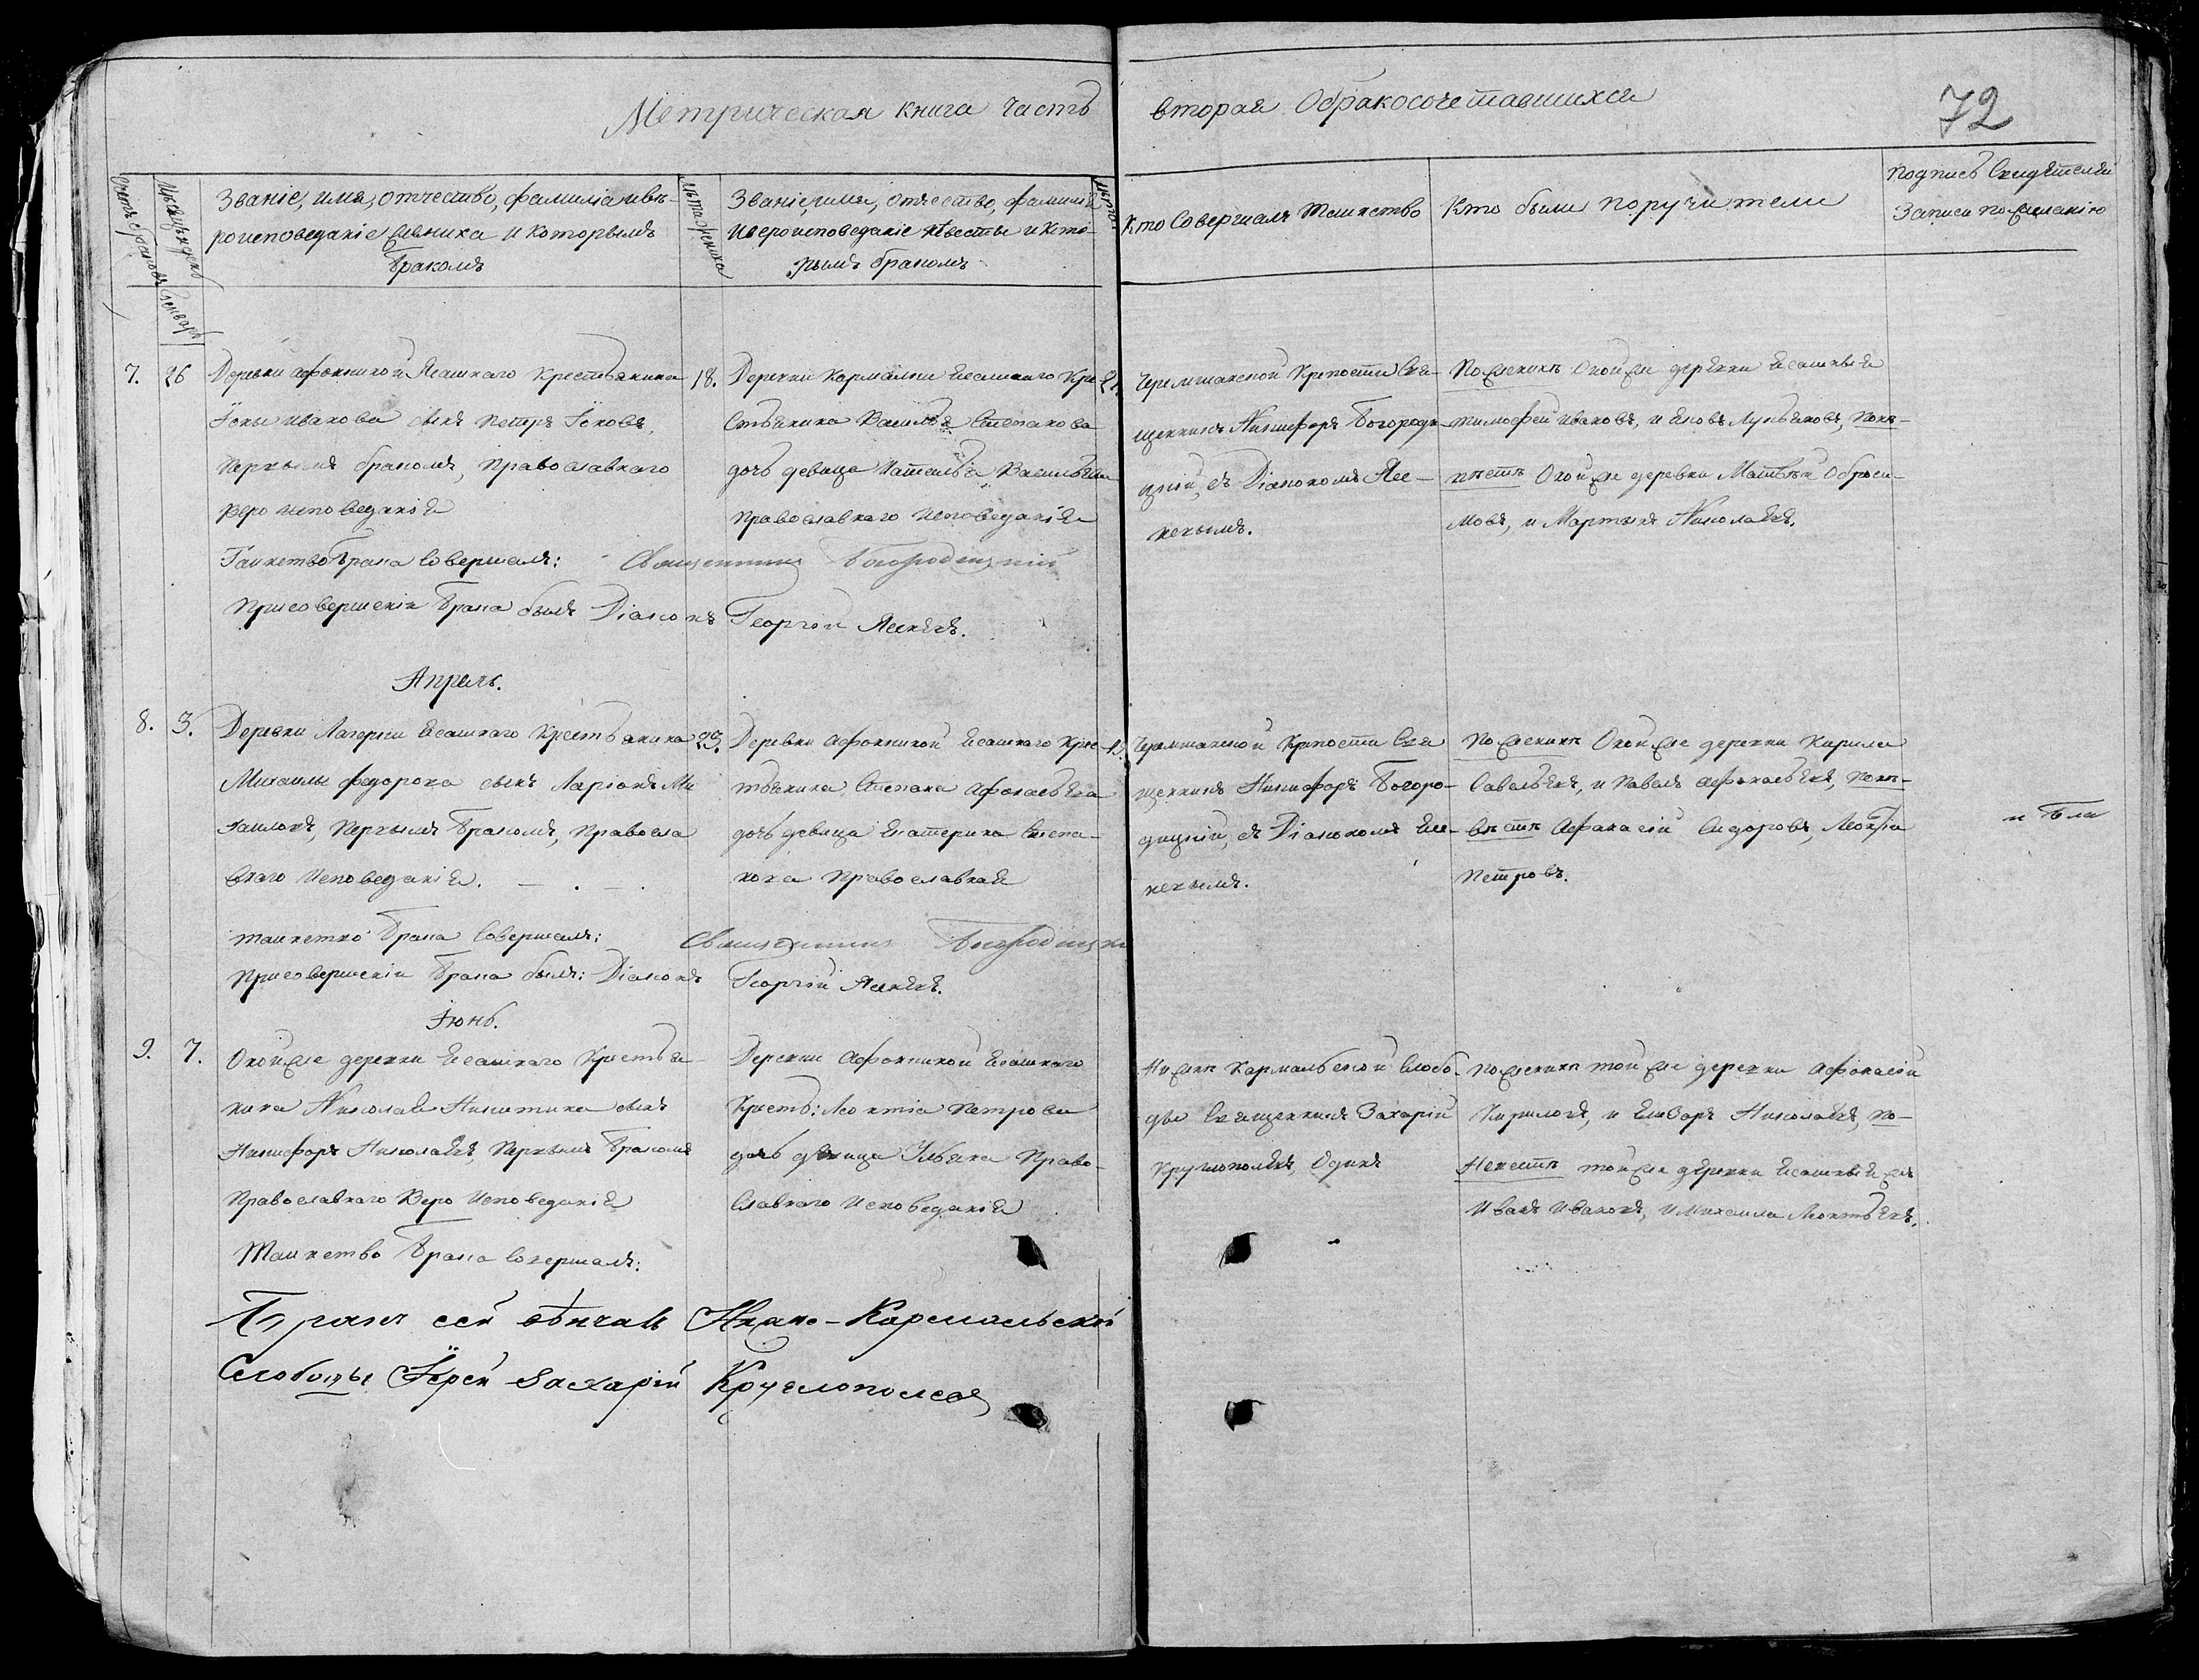 Метрическая книга часть
вторая Обракосочетавшихся
72
Счетъ браковъ
Мѣсяцъ и день
Генварь
Званіе, имя, отчество, фамилія и вѣ-
роисповеданіе жениха и которымъ
бракомъ
Лѣта жениха
Званіе, имя, отчество, фамилія
и вероисповеданіе невесты и кото-
рымъ бракомъ
Кто Совершалъ Таинство
Кто были поручители
Подпись Свидѣтелей
Записи по желанію
7.
26
Деревни Афонкиной Ясашнаго Крестьянина
18.
Іоны Иванова сынъ Петръ Іоновъ,
Первымъ бракомъ, Православнаго
Веро исповеданія
Деревни Кармалки Ясашнаго Кре-
21.
стьянина Василья Степанова
дочь девица Наталья Васильева
Православнаго исповеданія
Черемшанской Крепости Свя-
щенникъ Никифоръ Богороди-
цкій, съ Діакономъ Яс-
невымъ.
По женихѣ Оной же деревни Ясашныя
Тимофей Ивановъ, и Яковъ Лукьяновъ, по не-
вестѣ Оной же деревни Матвѣй Абраси-
мовъ, и Мартынъ Николаевъ.
Таинство Брака Совершалъ: Священникъ Богородицкій
При совершеніи Брака былъ Діаконъ Георгій Ясневъ.
Апрель.
8.
3.
Деревни Лагерки Ясашнаго Крестьянина
23.
Михаилы Федорова сынъ Ларіонъ Ми
хаиловъ, Первымъ Бракомъ, Правосла
внаго исповеданія.
Деревни Афонкиной Ясашнаго Крес-
19.
тьянина Степана Афонасьева
дочь девица Екатерина Степа-
нова Православная
Черемшанской Крепости Свя
щенникъ Никифоръ Богоро-
дицкій, съ Діакономъ Яс-
невымъ.
По женихѣ Оной же деревни Кирила
Савельевъ, и Павелъ Афонасьевъ, по не-
вестѣ Афанасій Сидоровъ, Леонтій
Петровъ.
Таинство Брака Совершалъ: Священникъ Богородицкій
При совершеніи Брака былъ: Діаконъ Георгій Ясневъ.
Іюнь.
9.
7.
Оной же деревни Ясашнаго Крестья-
нина Николая Никитина сынъ
Никифоръ Николаевъ, Первымъ Бракомъ
Православнаго Веро исповеданія
Деревни Афонкиной Ясашнаго
Кресть: Леонтія Петрова
дочь девица Ульяна Право-
славнаго исповеданія
Кармальской Слобо-
ды Священникъ Захарій
Круглополевъ, Одинъ
По женихѣ той же деревни Афонасій
Кириловъ, и Елизаръ Николаевъ, по
Невестѣ той же деревни Ясашныя
Иванъ Ивановъ, и Михаила Леонтьевъ.
Таинство Брака Совершалъ:
Бракъ сей вѣнчалъ Кармальской
Слободы Іерей Захарій Круглополевъ